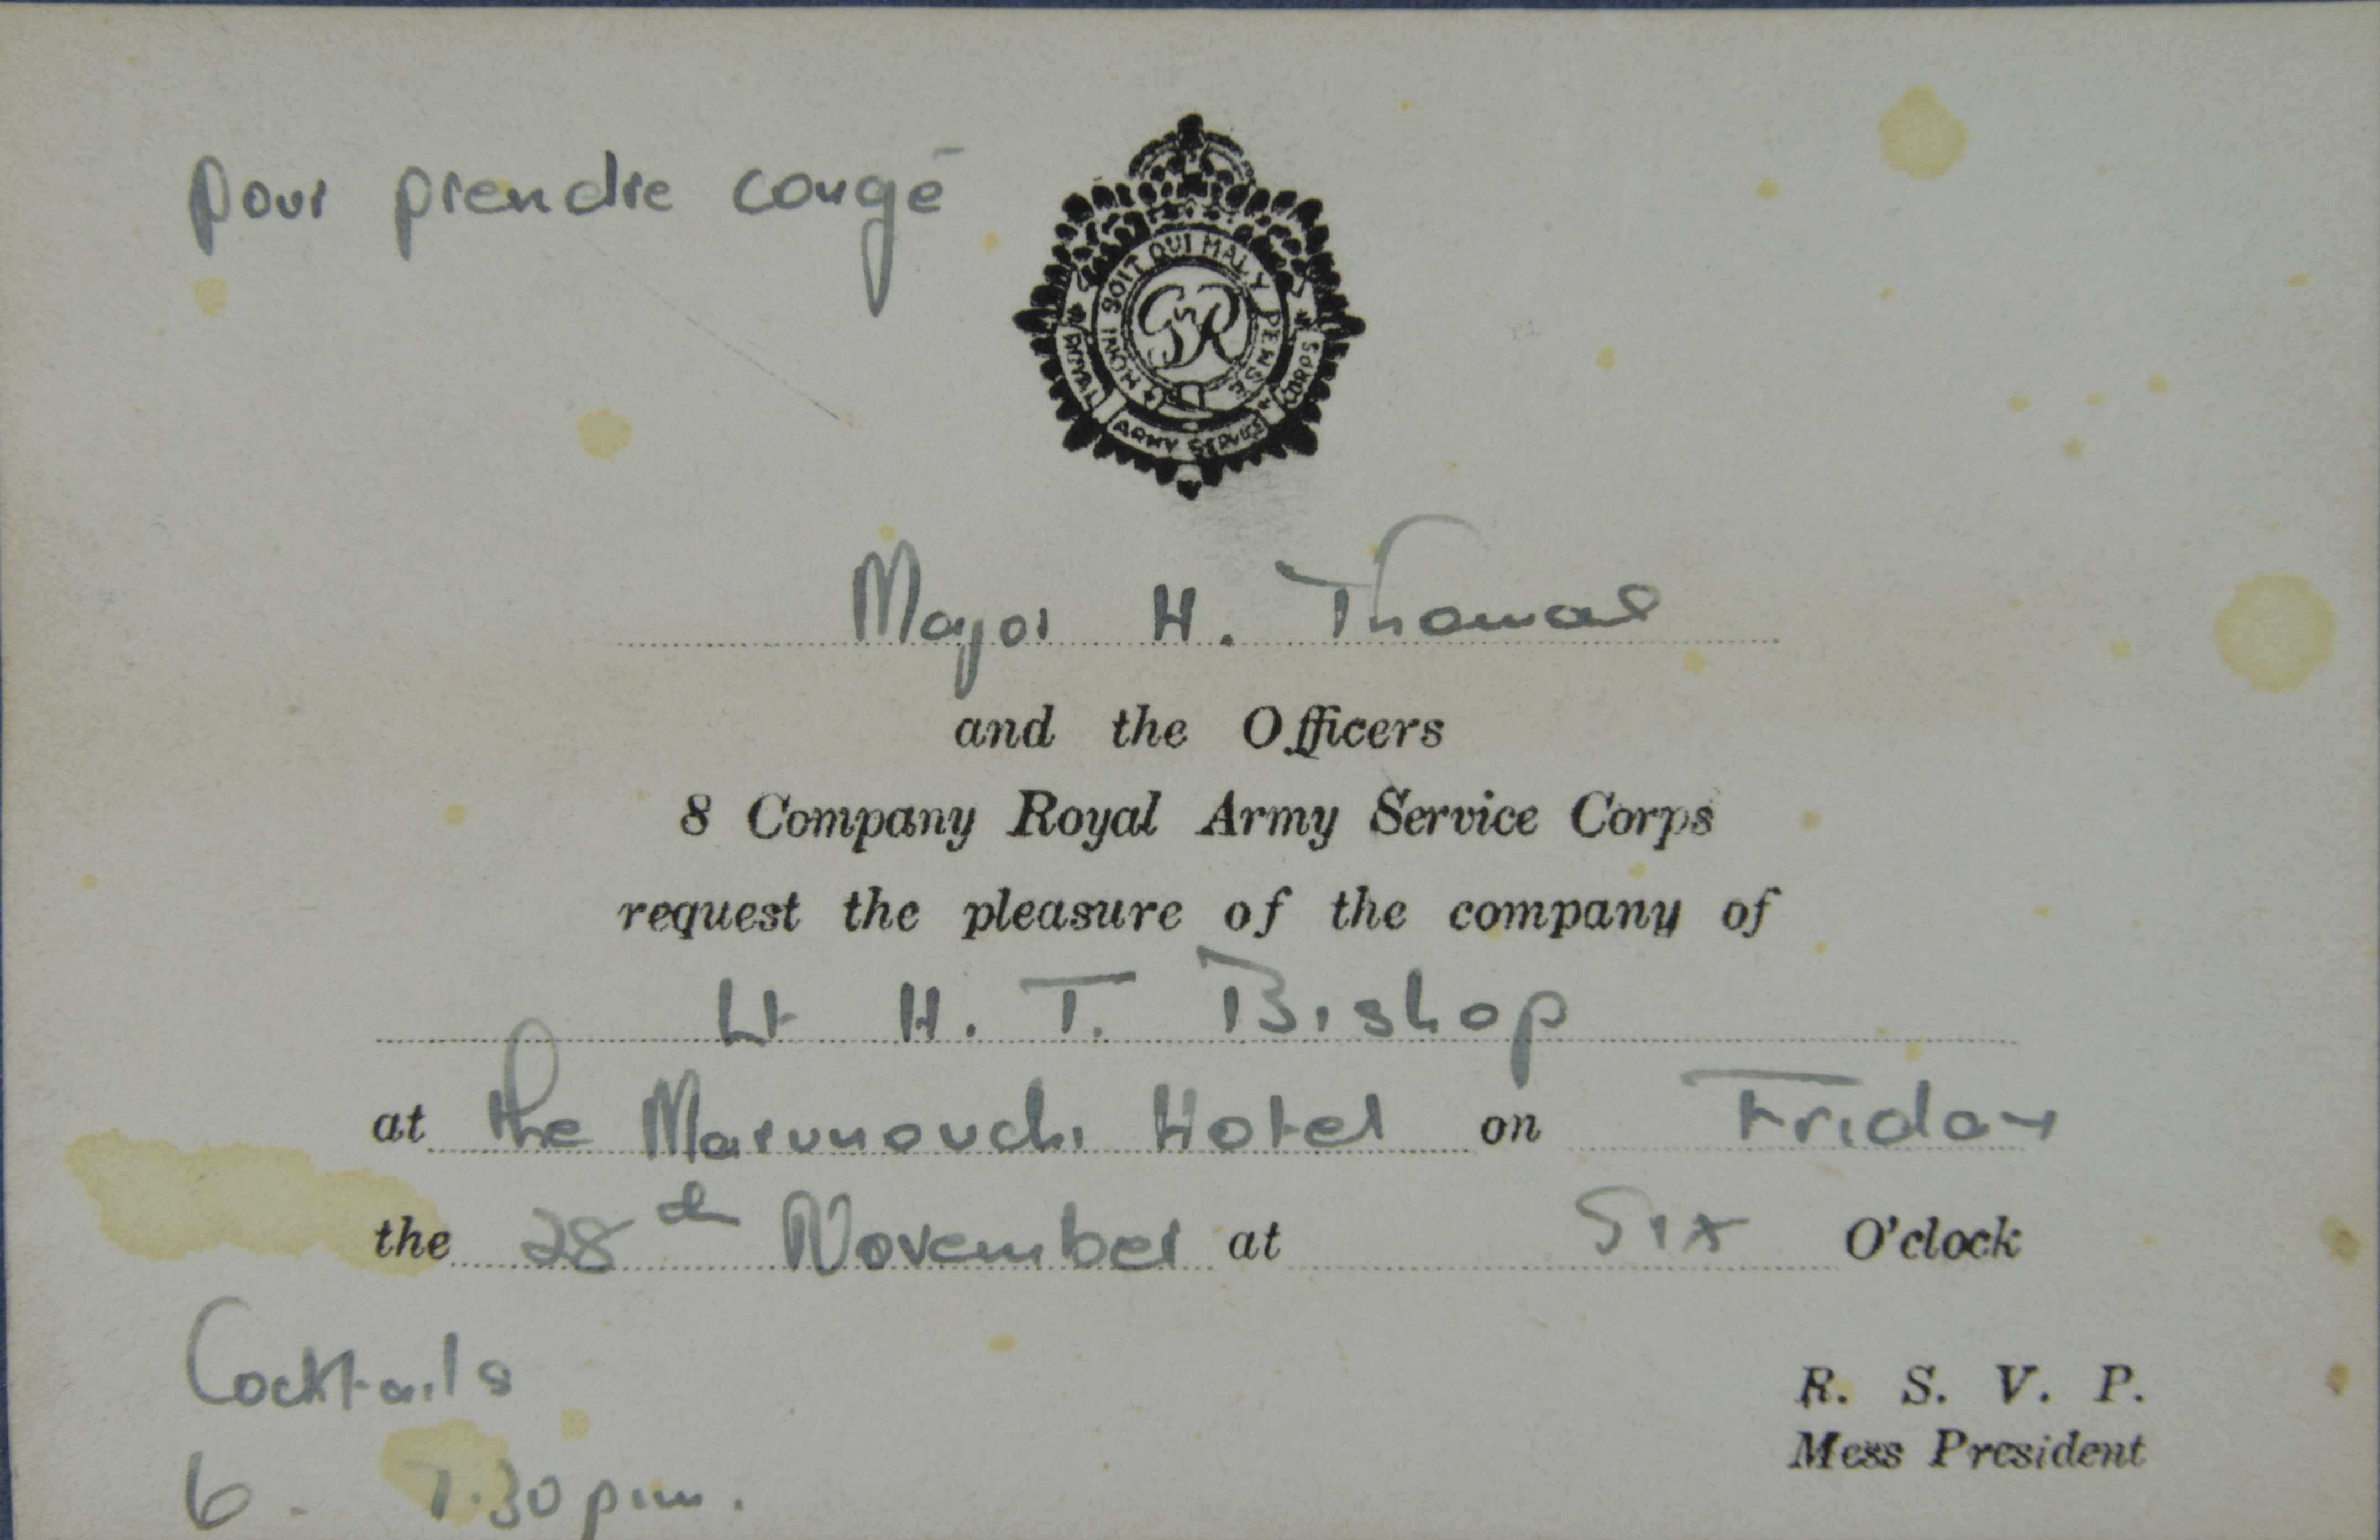 pour prendre congé
HONI SOIT QUI MAL Y PENSE
GR
ROYAL ARMY SERVICE CORPS
Major H. Thomas
and the Officers
8 Company Royal Army Service Corps
request the pleasure of the company of
Lt H. T. Bishop
at the Marunouchi Hotel on Friday
the 28th November at Six O'clock
Cocktails
6 - 7.30 p.m.
R. S. V. P.
Mess President